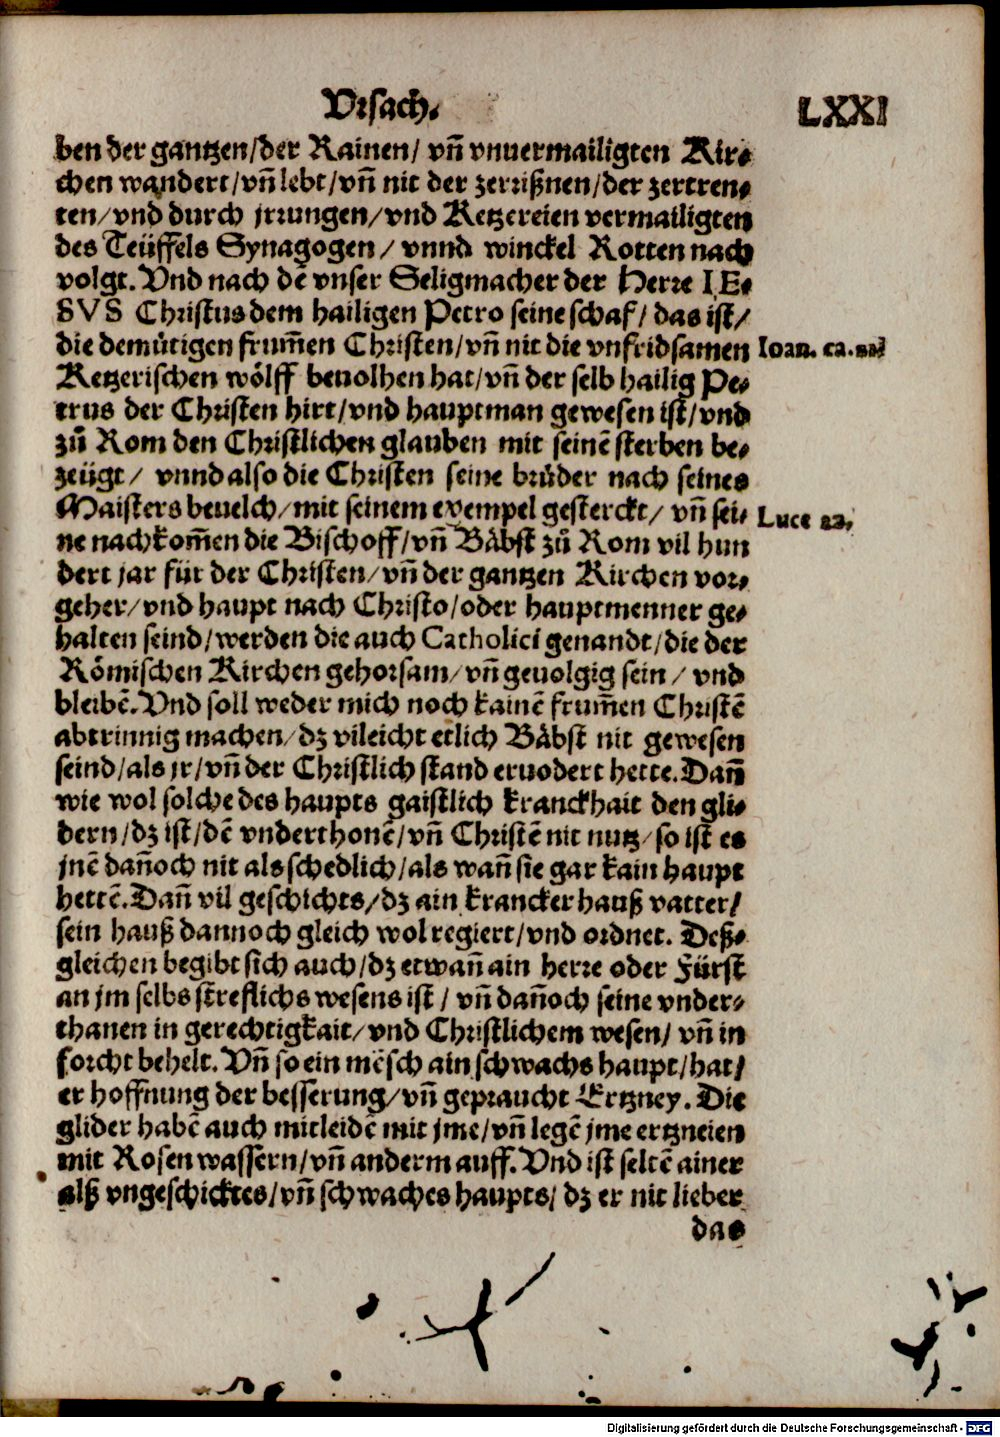 Vrsach.
LXXI
ben der gantzen/der Rainen/ vn̄ vnuermailigten Kir⸗
chen wandert/vn̄ lebt/vn̄ nit der zerrißnen/der zertren⸗
ten/vnd durch jrrungen/vnd Ketzereien vermailigten
des Teüffels Synagogen/ vnnd winckel Rotten nach
volgt. Vnd nach dē vnser Seligmacher der Herre IE⸗
SVS Christus dem hailigen Petro seine schaf/ das ist/
die demůtigen frum̄en Christen/vn̄ nit die vnfridsamen
Ioan. ca.
Ketzerischen wölff beuolhen hat/vn̄ der selb hailig Pe⸗
trus der Christen hirt/vnd hauptman gewesen ist/vnd
zů Rom den Christlichen glauben mit seinē sterben be⸗
zeügt/ vnnd also die Christen seine brůder nach seines
Maisters beuelch/mit seinem exempel gesterckt/ vn̄ sei⸗
Luce 22.
ne nachkom̄en die Bischoff/vn̄ Bäbst zů Rom vil hun
dert jar für der Christen/vn̄ der gantzen Kirchen vor⸗
geher/vnd haupt nach Christo/oder hauptmenner ge⸗
halten seind/werden die auch Catholici genandt/die der
Römischen Kirchen gehorsam/vn̄ geuolgig sein/ vnd
bleibē. Vnd soll weder mich noch kainē frum̄en Christē
abtrinnig machen/dz vileicht etlich Bäbst nit gewesen
seind/als jr/vn̄ der Christlich stand eruodert hette. Dan̄
wie wol solche des haupts gaistlich kranckhait den gli⸗
dern/dz ist/dē vnderthonē/vn̄ Christē nit nutz/so ist es
jnē dan̄och nit als schedlich/als wan̄ sie gar kain haupt
hettē. Dan̄ vil geschichts/dz ain krancker hauß vatter/
sein hauß dannoch gleich wol regiert/vnd ordnet. Deß⸗
gleichen begibt sich auch/dz etwan̄ ain herre oder Fürst
an jm selbs streflichs wesens ist/ vn̄ dan̄och seine vnder⸗
thanen in gerechtigkait/vnd Christlichem wesen/ vn̄ in
forcht behelt. Vn̄ so ein mēsch ain schwachs haupt/hat/
er hoffnung der besserung/vn̄ gepraucht Ertzney. Die
glider habē auch mitleidē mit jme/vn̄ legē jme ertzneien
mit Rosen wassern/vn̄ anderm auff. Vnd ist seltē ainer
alß vngeschicktes/vn̄ schwaches haupts/ dz er nit lieber
das
Digitalisierung gefördert durch die Deutsche Forschungsgemeinschaft - DFG